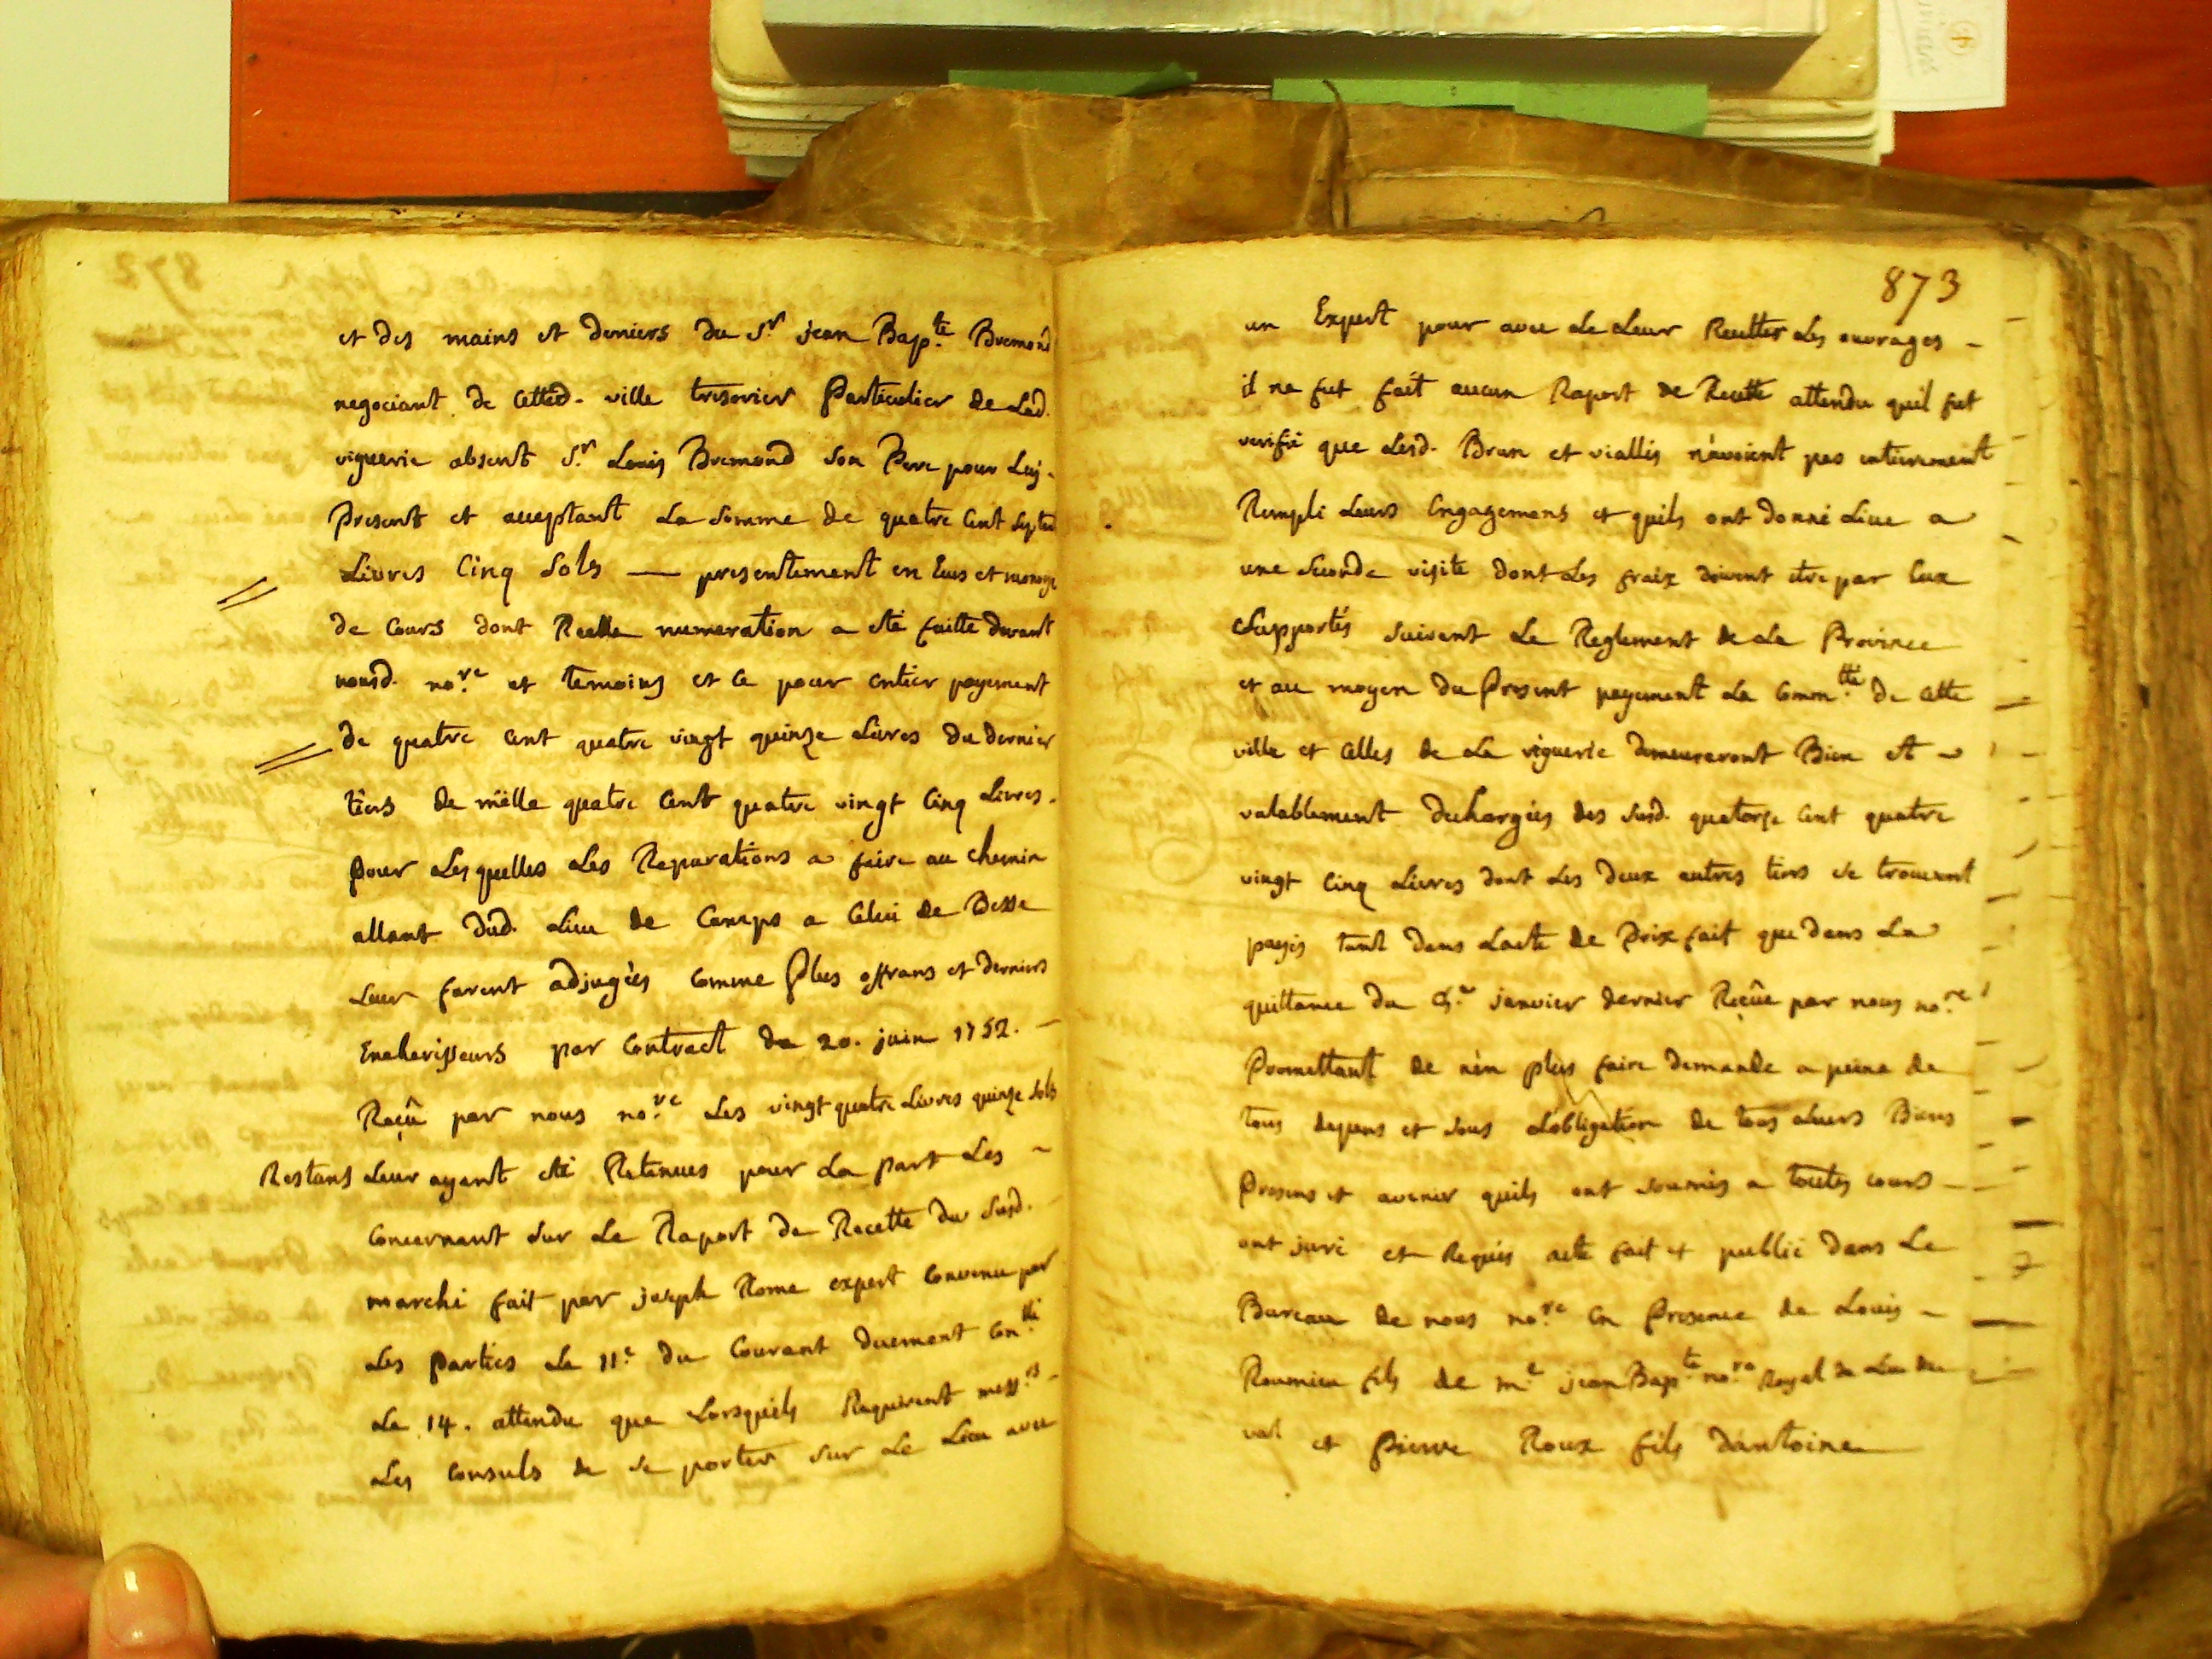 et des mains et deniers du Sr. jean Bapte. Bremond
negociant de cetted. ville tresorier Particulier de Lad.
viguerie absent Sr. Louis Bremond son Pere pour Luy.
Present et acceptant La somme de quatre cent septante
Livres Cinq sols — presentement en Ecus et monoye
de Cours dont Reelle numeration a eté faitte devant
nousd. nore. et temoins et ce pour entier payement
de quatre cent quatre vingt quinze Livres du dernier
tiers de mille quatre cent quatre vingt cinq Livres.
pour Lesquelles Les Reparations a faire au chemin
allant dud. Lieu de Camps a Celui de Besse
Leur furent adjugées comme Plus offrans et derniers
Encherisseurs par Contract du 20. juin 1752. —
Reçû par nous nore. Les vingt quatre Livres quinze sols
Restans Leur ayant eté Retenues pour La part Les ~
Concernant sur Le Raport de Recette du susd.
marché fait par joseph Rome expert convenu par
Les parties Le 11e. du Courant duement
Le 14. attendu que Lorsquils Requirent messrs. -
Les Consuls de se porter sur Le Lieu avec
873
un Expert pour avec Le Leur Recetter Les ouvrages -
il ne fut fait aucun Raport de Recette attendu quil fut
verifié que Lesd. Brun et viallis n'avoient pas entierement
Rempli Leurs Engagemens et quils ont donné Lieu a
une seconde visite dont Les fraix doivent etre par Eux
Supportés suivant Le Reglement de La Province
et au moyen du Present payement La Commtté. de cette
ville et celles de La viguerie demeureront Bien et ~
valablement dechargées des susd. quatorze cent quatre
vingt cinq Livres dont Les deux autres tiers se trouvent
payés tant dans Lacte de Prix fait que dans La
quittance du janvier dernier Reçûe par nous nore.
Promettant de n'en plus faire demande a peine de
tous depens et sous L'obligation de tous Leurs Biens
Presens et avenir quils ont soumis a toutes cours —
ont juré et Requis acte fait et publié dans Le
Bureau de nous nore. en Presence de Louis -
Roumieu fils de me. jean Bapte. nore. Royal du Lieu du
val et pierre Roux fils dantoine